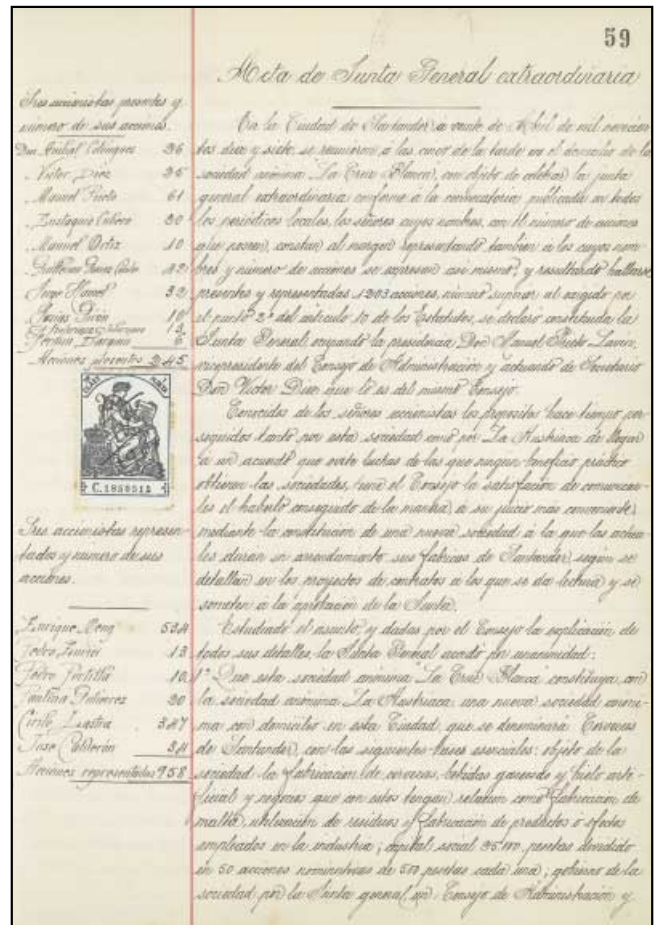 59
Acta de Junta General extraordinaria
Sres accionistas presentes y
número de sus acciones.
Don 36
Victor Diez 35
Manuel Prieto 61
Eustaquio Cubero 30
Manuel Ortiz 10
Guillermo 42
Jorge 32
Durán 10
13
Fermin 6
Acciones presentes 245
C.1850515
Sres accionistas represen-
tados y número de sus
acciones.
Enrique Meng 534
Pedro 13
Pedro Portilla 10
Paulino Gutierrez 20
Cirilo Lastra 347
Jose Calderón 34
Acciones representadas 958
En la Ciudad de Santander a veinte de Abril de mil novecien-
tos diez y siete, se reunieron a las cinco de la tarde en el domicilio de la
sociedad anónima "La Cruz Blanca", con objeto de celebrar la junta
general extraordinaria conforme a la convocatoria publicada en todos
los periódicos locales, los señores cuyos nombres, con el número de acciones
que poseen, constan al margen representando también a los cuyos nom-
bres y número de acciones se expresan asi mismo, y resultando hallarse
presentes y representadas 1203 acciones, número superior al exigido por
el punto 2º del articulo 10 de los Estatutos, se declaró constituida la
Junta General, ocupando la presidencia Don Manuel Prieto Lavin,
vicepresidente del Consejo de Administración y actuando de Secretario
Don Victor Diez que lo es del mismo Consejo.
Conocidos de los señores accionistas los propositos hace tiempo per-
seguidos tanto por esta sociedad como por La Austriaca de llegar
a un acuerdo que evite luchas de las que ningun beneficio práctico
obtienen las sociedades, tiene el Consejo la satisfacion de comunicar-
les el haberlo conseguido de la manera, a su juicio más conveniente,
mediante la constitución de una nueva sociedad á la que las actua-
les darán en arrendamiento sus fábricas de Santander, según se
detallan en los proyectos de contratos a los que se da lectura y se
someten á la aprobación de la Junta.
Estudiado el asunto, y dadas por el Consejo la explicación de
todos sus detalles, la Junta General acordó por unanimidad:
1º Que esta sociedad anónima "La Cruz Blanca" constituya, con
la sociedad anónima La Austriaca, una nueva sociedad anóni-
ma con domicilio en esta Ciudad, que se denominará Cervezas
de Santander, con las siguientes bases esenciales: objeto de la
sociedad la fabricacion de cervezas, bebidas gaseosas y hielo arti-
ficial y negocios que con estos tengan relacion como fabricacion de
malta, utilizacion de residuos y fabricación de productos ó efectos
empleados en la industria; capital social 25.000 pesetas dividido
en 50 acciones nominativas de 500 pesetas cada una; gobierno de la
sociedad por la Junta general, un Consejo de Administración y